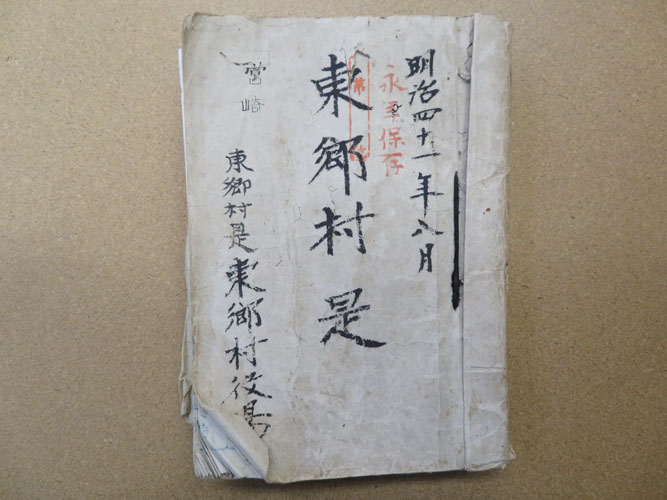 明治四十一年八月
永年保存
第
東郷村是
宮崎
東郷村是
東郷村役場